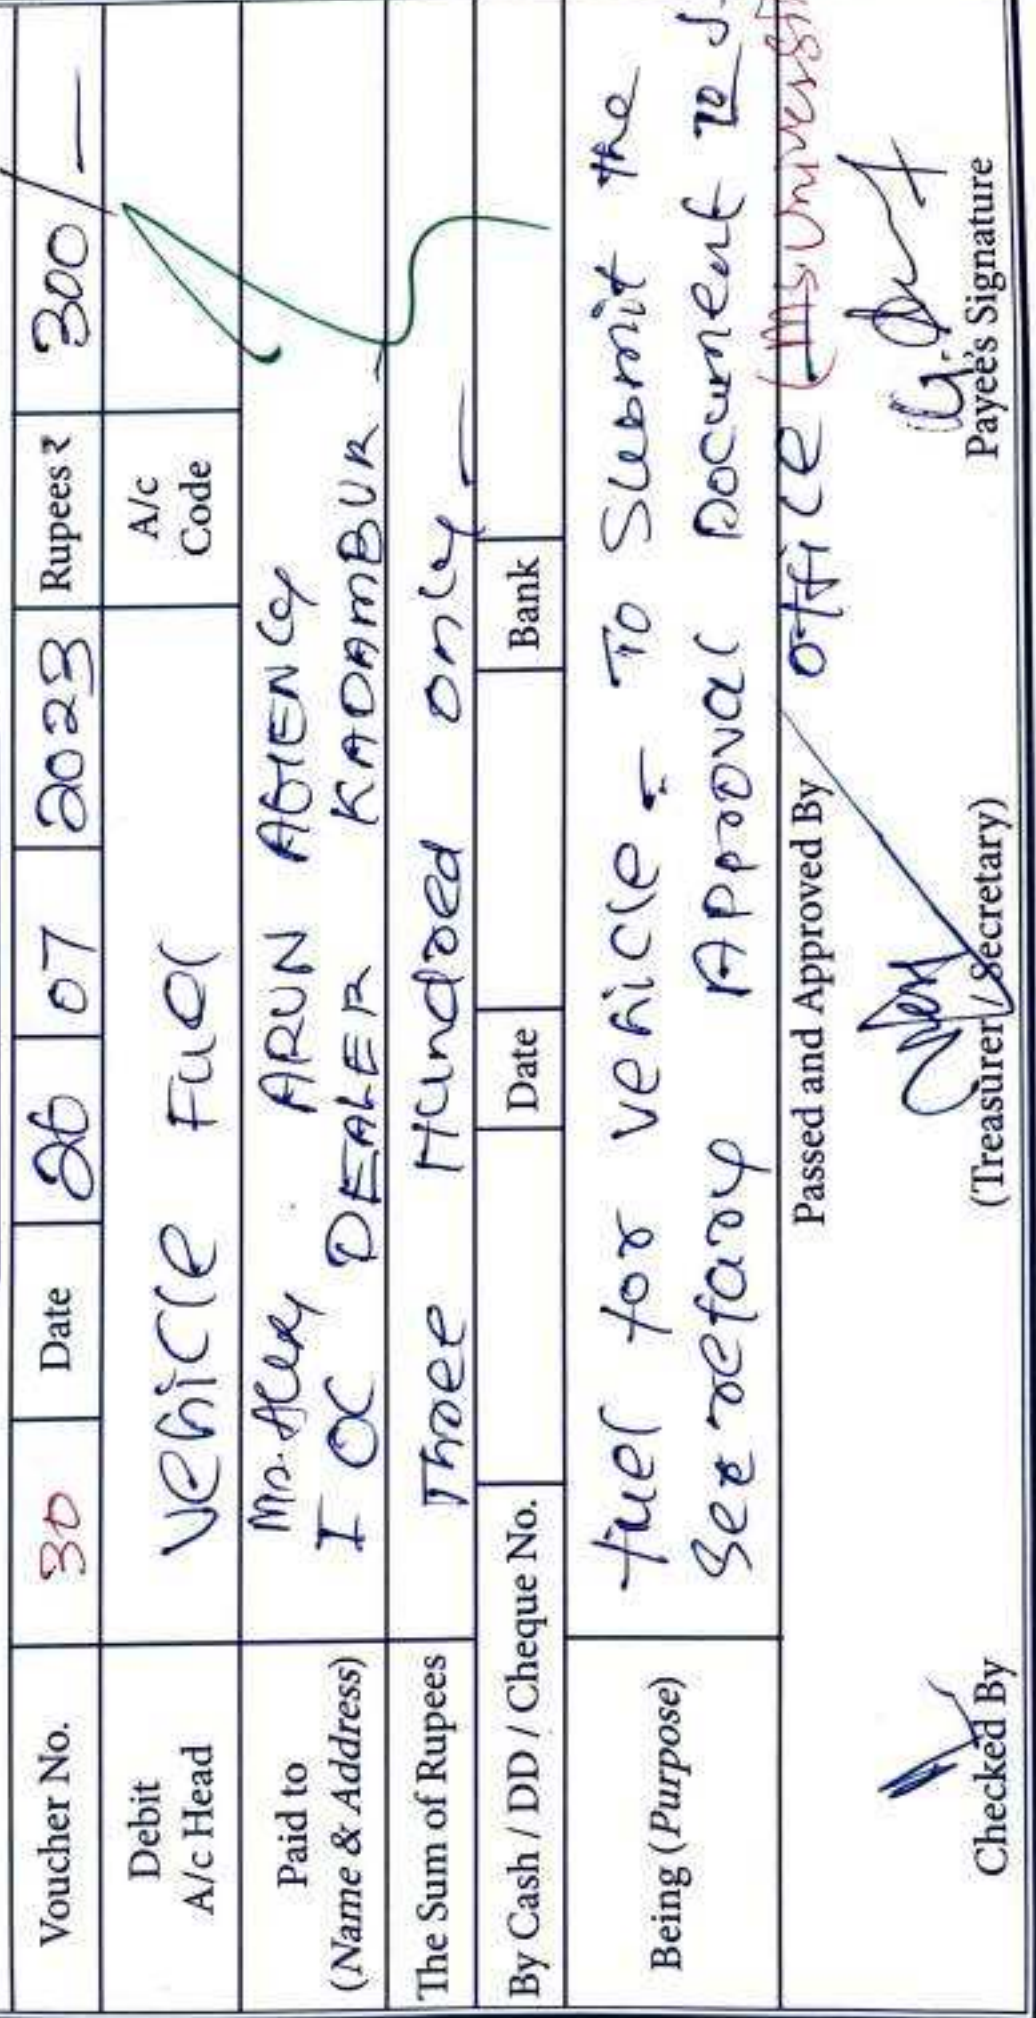 Voucher No. 30 Date 26 07 2023 Rupees ₹ 300/-
Debit A/c Head Vehicle Fuel A/c Code
Paid to (Name & Address) ARUN AGENCY
IOC DEALER KADAMBUR
The Sum of Rupees Three Hundred only
By Cash / DD / Cheque No. Date Bank
Being (Purpose) fuel for vehicle - To Submit the
Secretary Approval Document to
office (MS University
Passed and Approved By
Checked By (Treasurer / Secretary) Payee's Signature